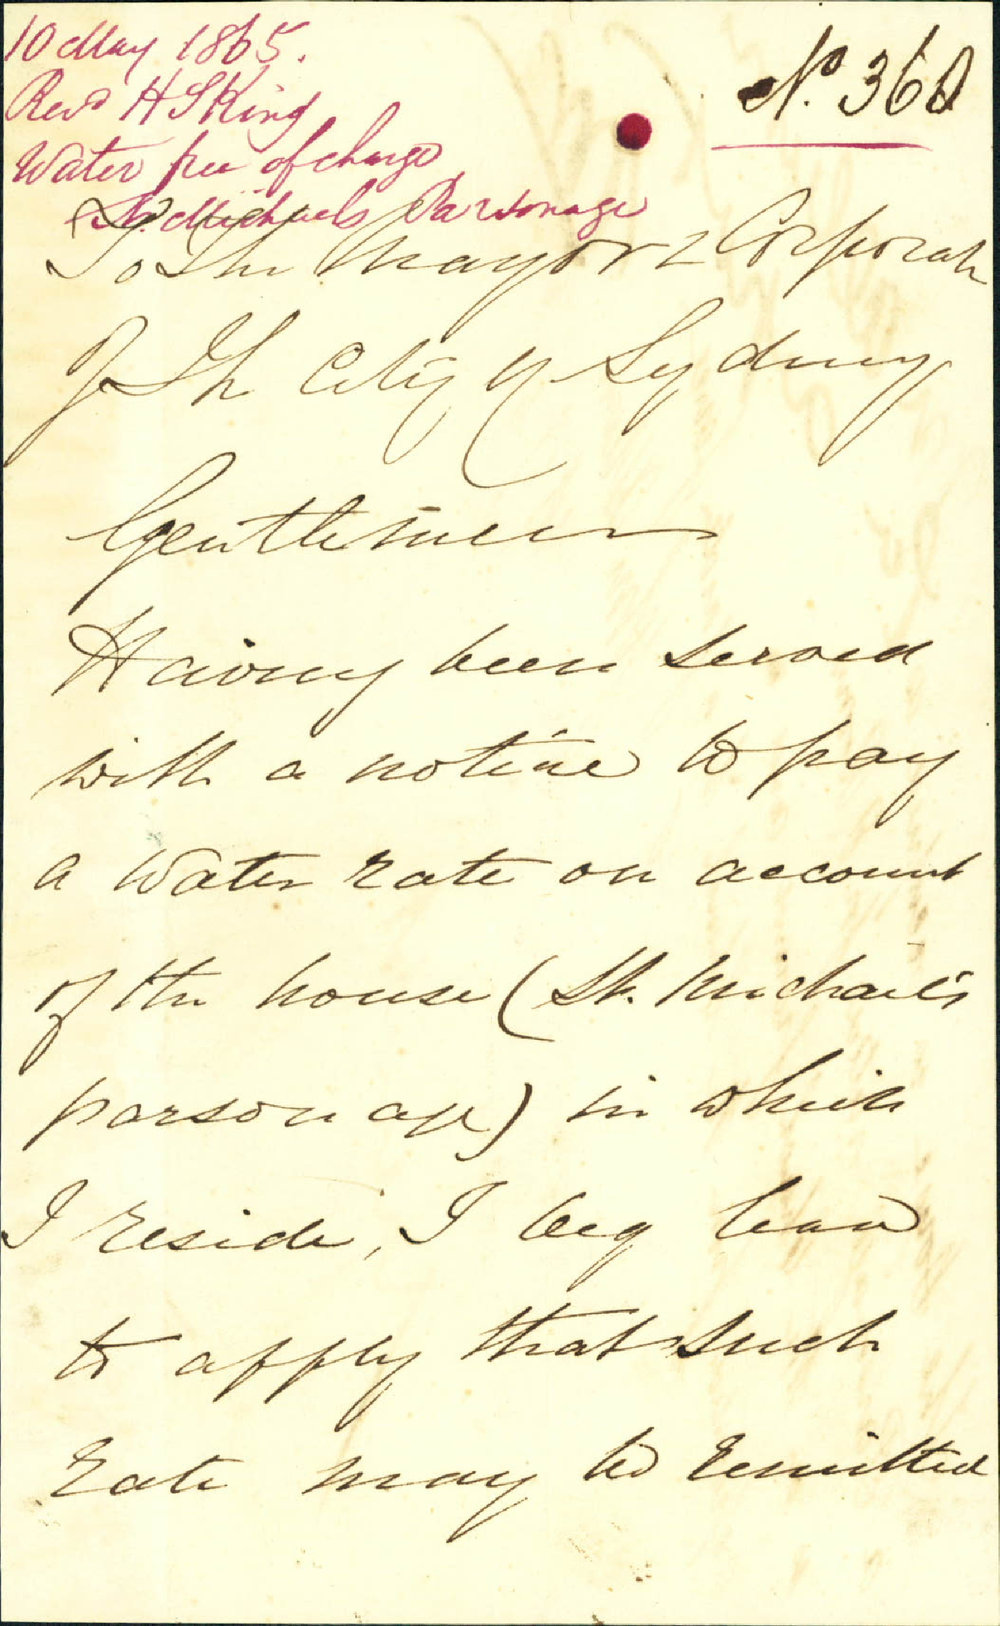 10 May 1865.
Revd H S King
Water free of charge
St. Michaels Parsonage
No. 360
To The Mayor & Corporatn
of The City of Sydney
Gentlemen
Having been served
with a notice to pay
a Water rate on account
of the house (St. Michael's
parsonage) in which
I reside, I beg leave
to apply that such
rate may be remitted